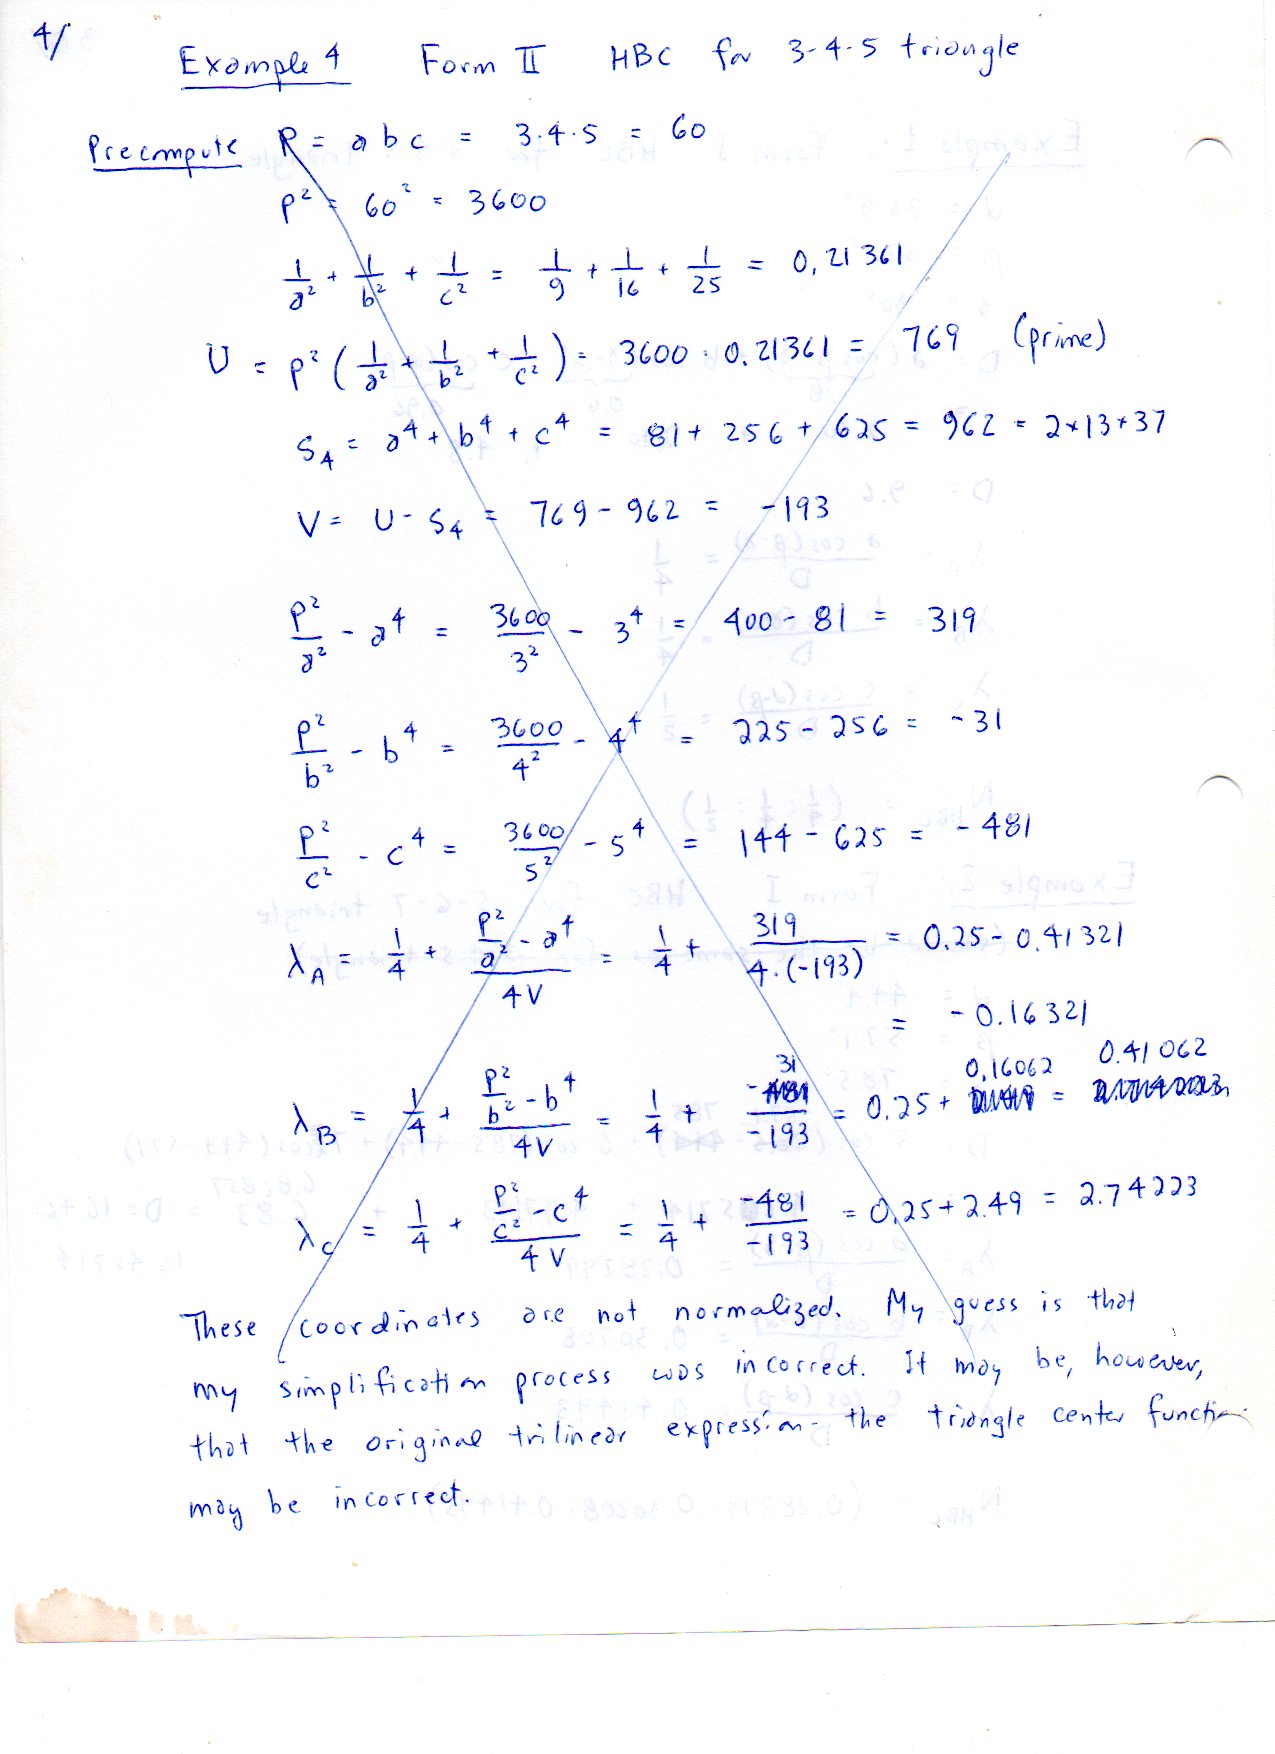 4/
Example 4 Form II HBC for 3-4-5 triangle
Precompute P = abc = 3·4·5 = 60
p² = 60² = 3600
1/a² + 1/b² + 1/c² = 1/9 + 1/16 + 1/25 = 0,21361
U = p² (1/a² + 1/b² + 1/c²) = 3600 · 0.21361 = 769 (prime)
S₄ = a⁴ + b⁴ + c⁴ = 81 + 256 + 625 = 962 = 2×13×37
V = U - S₄ = 769 - 962 = -193
p²/a² - a⁴ = 3600/3² - 3⁴ = 400 - 81 = 319
p²/b² - b⁴ = 3600/4² - 4⁴ = 225 - 256 = -31
p²/c² - c⁴ = 3600/5² - 5⁴ = 144 - 625 = -481
λA = 1/4 + (p²/a² - a⁴)/4V = 1/4 + 319/4·(-193) = 0.25 - 0.41321
= -0.16321
λB = 1/4 + (p²/b² - b⁴)/4V = 1/4 + -31/-193 = 0.25 + 0,16062 = 0.41062
λC = 1/4 + (p²/c² - c⁴)/4V = 1/4 + -481/-193 = 0.25 + 2.49 = 2.74223
These coordinates are not normalized. My guess is that
my simplification process was incorrect. It may be, however,
that the original trilinear expression - the triangle center function
may be incorrect.